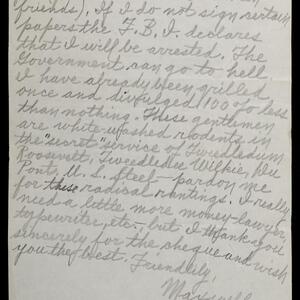 friends). If I do not sign certain
papers the F.B.I. declares
that I will be arrested. The
Government can go to hell.
I have already been grilled
once and divulged 100% less
than nothing. These gentlemen
are white-washed rodents in
the "secret" service of Tweedledum
Roosevelt, Tweedledee Wilkie, Du
Pont, U. S. Steel - pardon me
for these radical rantings. I really
need a little more money - lawyer,
typewriter, etc. - but I thank you
sincerely for the cheque and wish
you the best. Friendly,